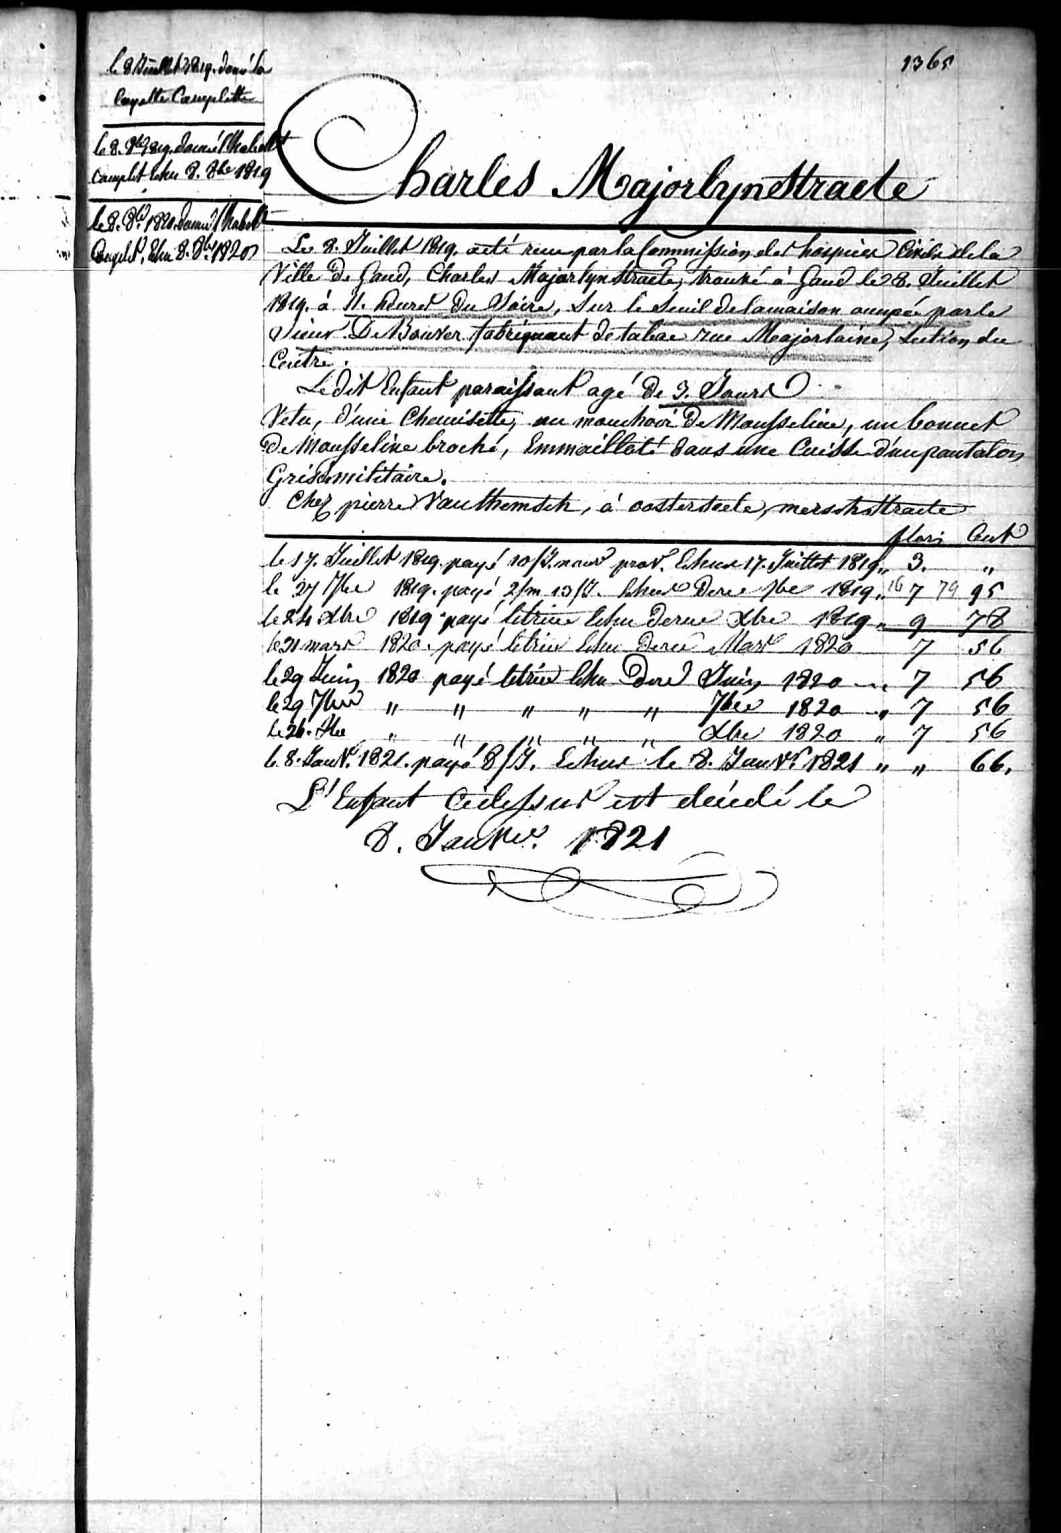 1365
le 8 Juillet 1819. donné la
layette Complette
le 8. 8bre 1819. donné l'habillt
complet Echu 8. 8bre 1819
le 8. 8bre 1820. donné l'habillt
Complet, Echu 8. 8bre 1820
Charles Majorlynstraete
Le 8. Juillet 1819. a été reçu par la Commission des hospices Civils de la
Ville de Gand, Charles Majorlynstraete, trouvé à Gand le 8. Juillet
1819. à 11. heures Du Soire, Sur le Seuil de la maison occupée par le
Sieur De Bouver fabriquant de tabac rue Majorlaine, Section du
Centre.
Ledit Enfant paraissant agé De 3. Jours
Vetu, d'une Chemisette, un mouchoir De Mousseline, un bonnet
De Mousseline broché, Emmailloté dans une Cuisse d'un pantalon
Gris militaire.
Chez pierre Vanthemsch, à oosterseele, merschstraete
flori Cent
le 17. Juillet 1819. payé 10/J. nour prov. Echus 17. Juillet 1819 „ 3. „
le 27 7bre 1819. payé 2/m 13/J. Echus Dere 7bre 1819 „ 16 7 79 95
le 24 Xbre 1819 payé letrim Echu derne Xbre 1819 „ 9 78
le 31 mars 1820. payé letrim Echu Derne Mars 1820 7 56
le 29 Juin 1820 payé letrim Echu Dere Juin 1820 „ 7 56
le 29 7bre „ „ „ „ „ 7bre 1820 „ 7 56
Le 26. Xbre „ „ „ „ „ Xbre 1820 „ 7 56
le 8. Janvr. 1821. payé 8/J. Echus le 8. Janvr. 1821 „ „ 66.
L'Enfant Cidessus est décédé le
8. Janvier. 1821